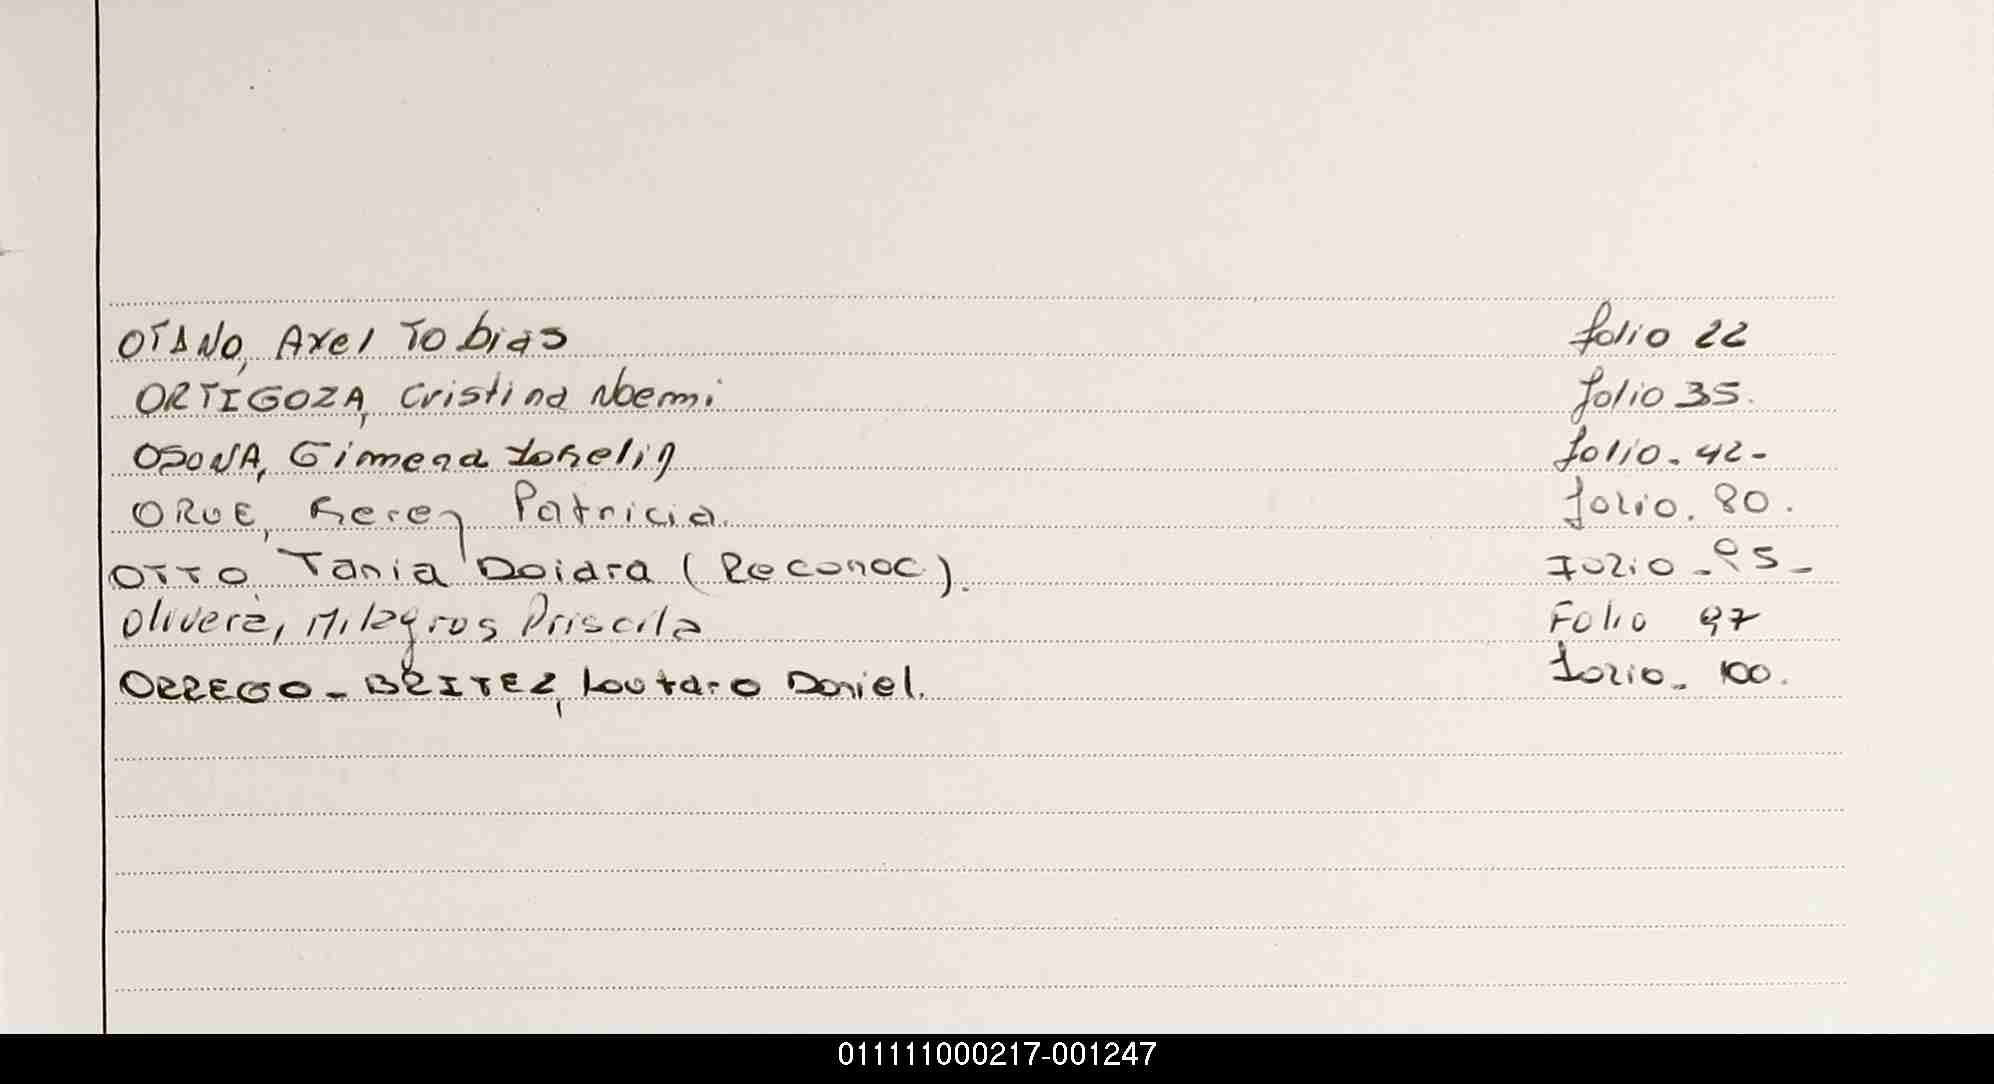 OTANO, Axel Tobias folio 22
ORTIGOZA, Cristina Noemi folio 35.
OSONA, Gimena folio. 42-
ORUE, Keren Patricia. folio. 80.
OTTO Tania Daiara (Reconoc). Folio - 95-
Olivera, Milagros Priscila Folio 97
ORREGO-BRITEZ, Lautaro Daniel. folio. 100.
011111000217-001247